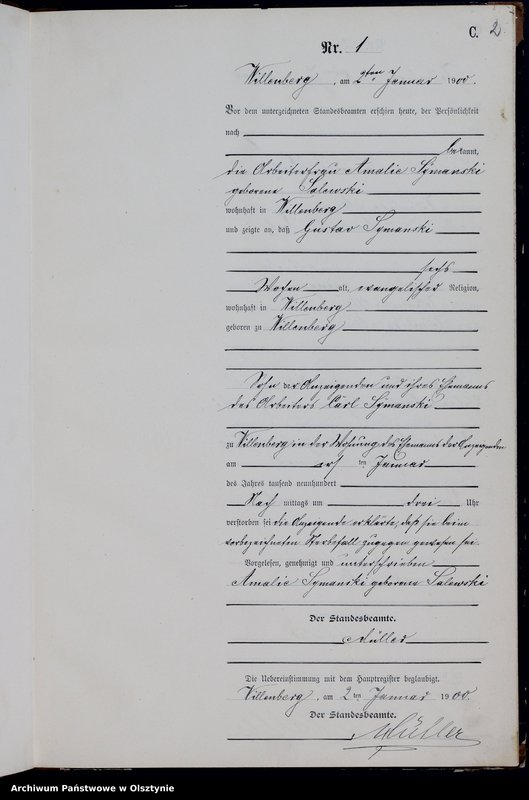 C. 2
Nr. 1
Willenberg, am 2ten Januar 1900.
Vor dem unterzeichneten Standesbeamten erschien heute, der Persönlichkeit
nach
bekannt,
die Arbeiterfrau Amalie Symanski
geborene Salewski
wohnhaft in Willenberg
und zeigte an, daß Gustav Symanski
sechs
Wochen alt, evangelischer Religion,
wohnhaft in Willenberg
geboren zu Willenberg
Sohn der Anzeigenden und ihres Ehemanns
des Arbeiters Carl Symanski
zu Willenberg in der Wohnung des Ehemanns der Anzeigenden
am ersten Januar
des Jahres tausend neunhundert
Nach mittags um drei Uhr
verstorben sei die Anzeigende erklärte, daß sie beim
vorbezeichneten Sterbefall zugegen gewesen sei.
Vorgelesen, genehmigt und unterschrieben
Amalie Symanski geborene Salewski
Der Standesbeamte.
Müller
Die Uebereinstimmung mit dem Hauptregister beglaubigt.
Willenberg, am 2ten Januar 1900.
Der Standesbeamte.
Müller
Archiwum Państwowe w Olsztynie